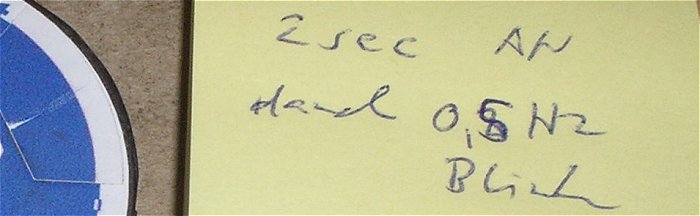 2 sec AN
danach 0,5 Hz
Blinken